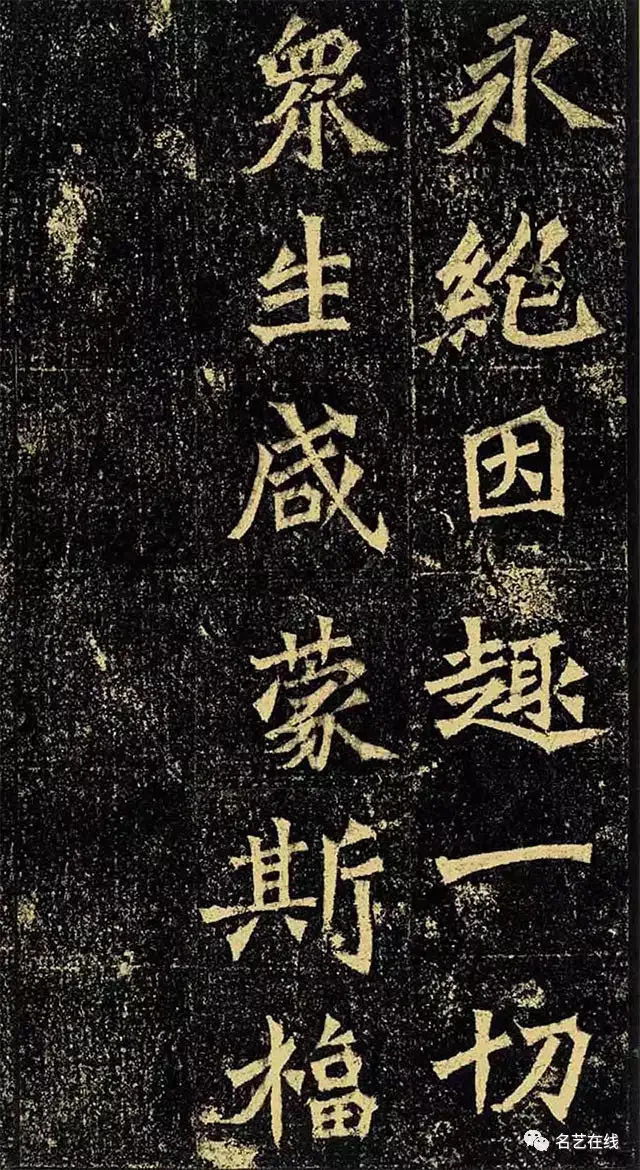 永絶因趣一切
衆生咸蒙斯福
名艺在线